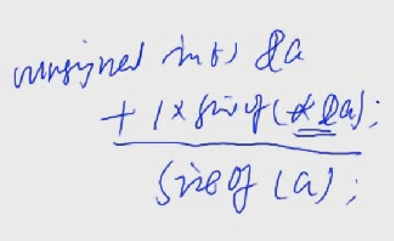 unsigned int) &a
+ 1 x sizeof(*&a);
sizeof (a);